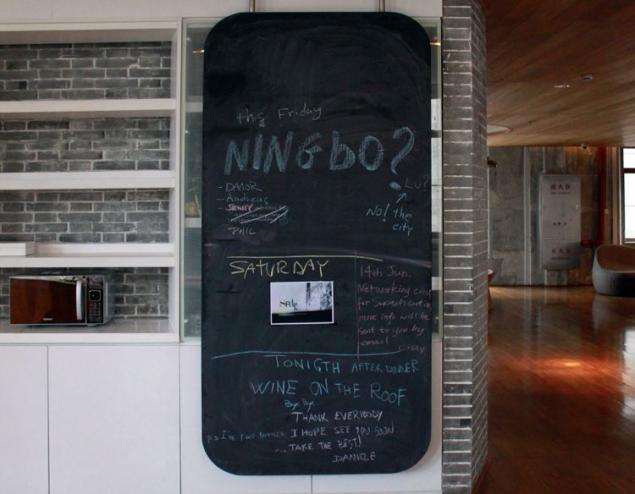 this Friday
NINGbO?
- DAMOR
- Andreas
PHIL
Lu?
No! the
city
SATURDAY
14th Jun.
Networking
for
more info will be
sent to you by
email
TONIGTH AFTER DINNER
WINE ON THE ROOF
Bye Bye
THANK EVERYBODY
I HOPE SEE YOU SOON
...TAKE THE BEST!
DANIELE